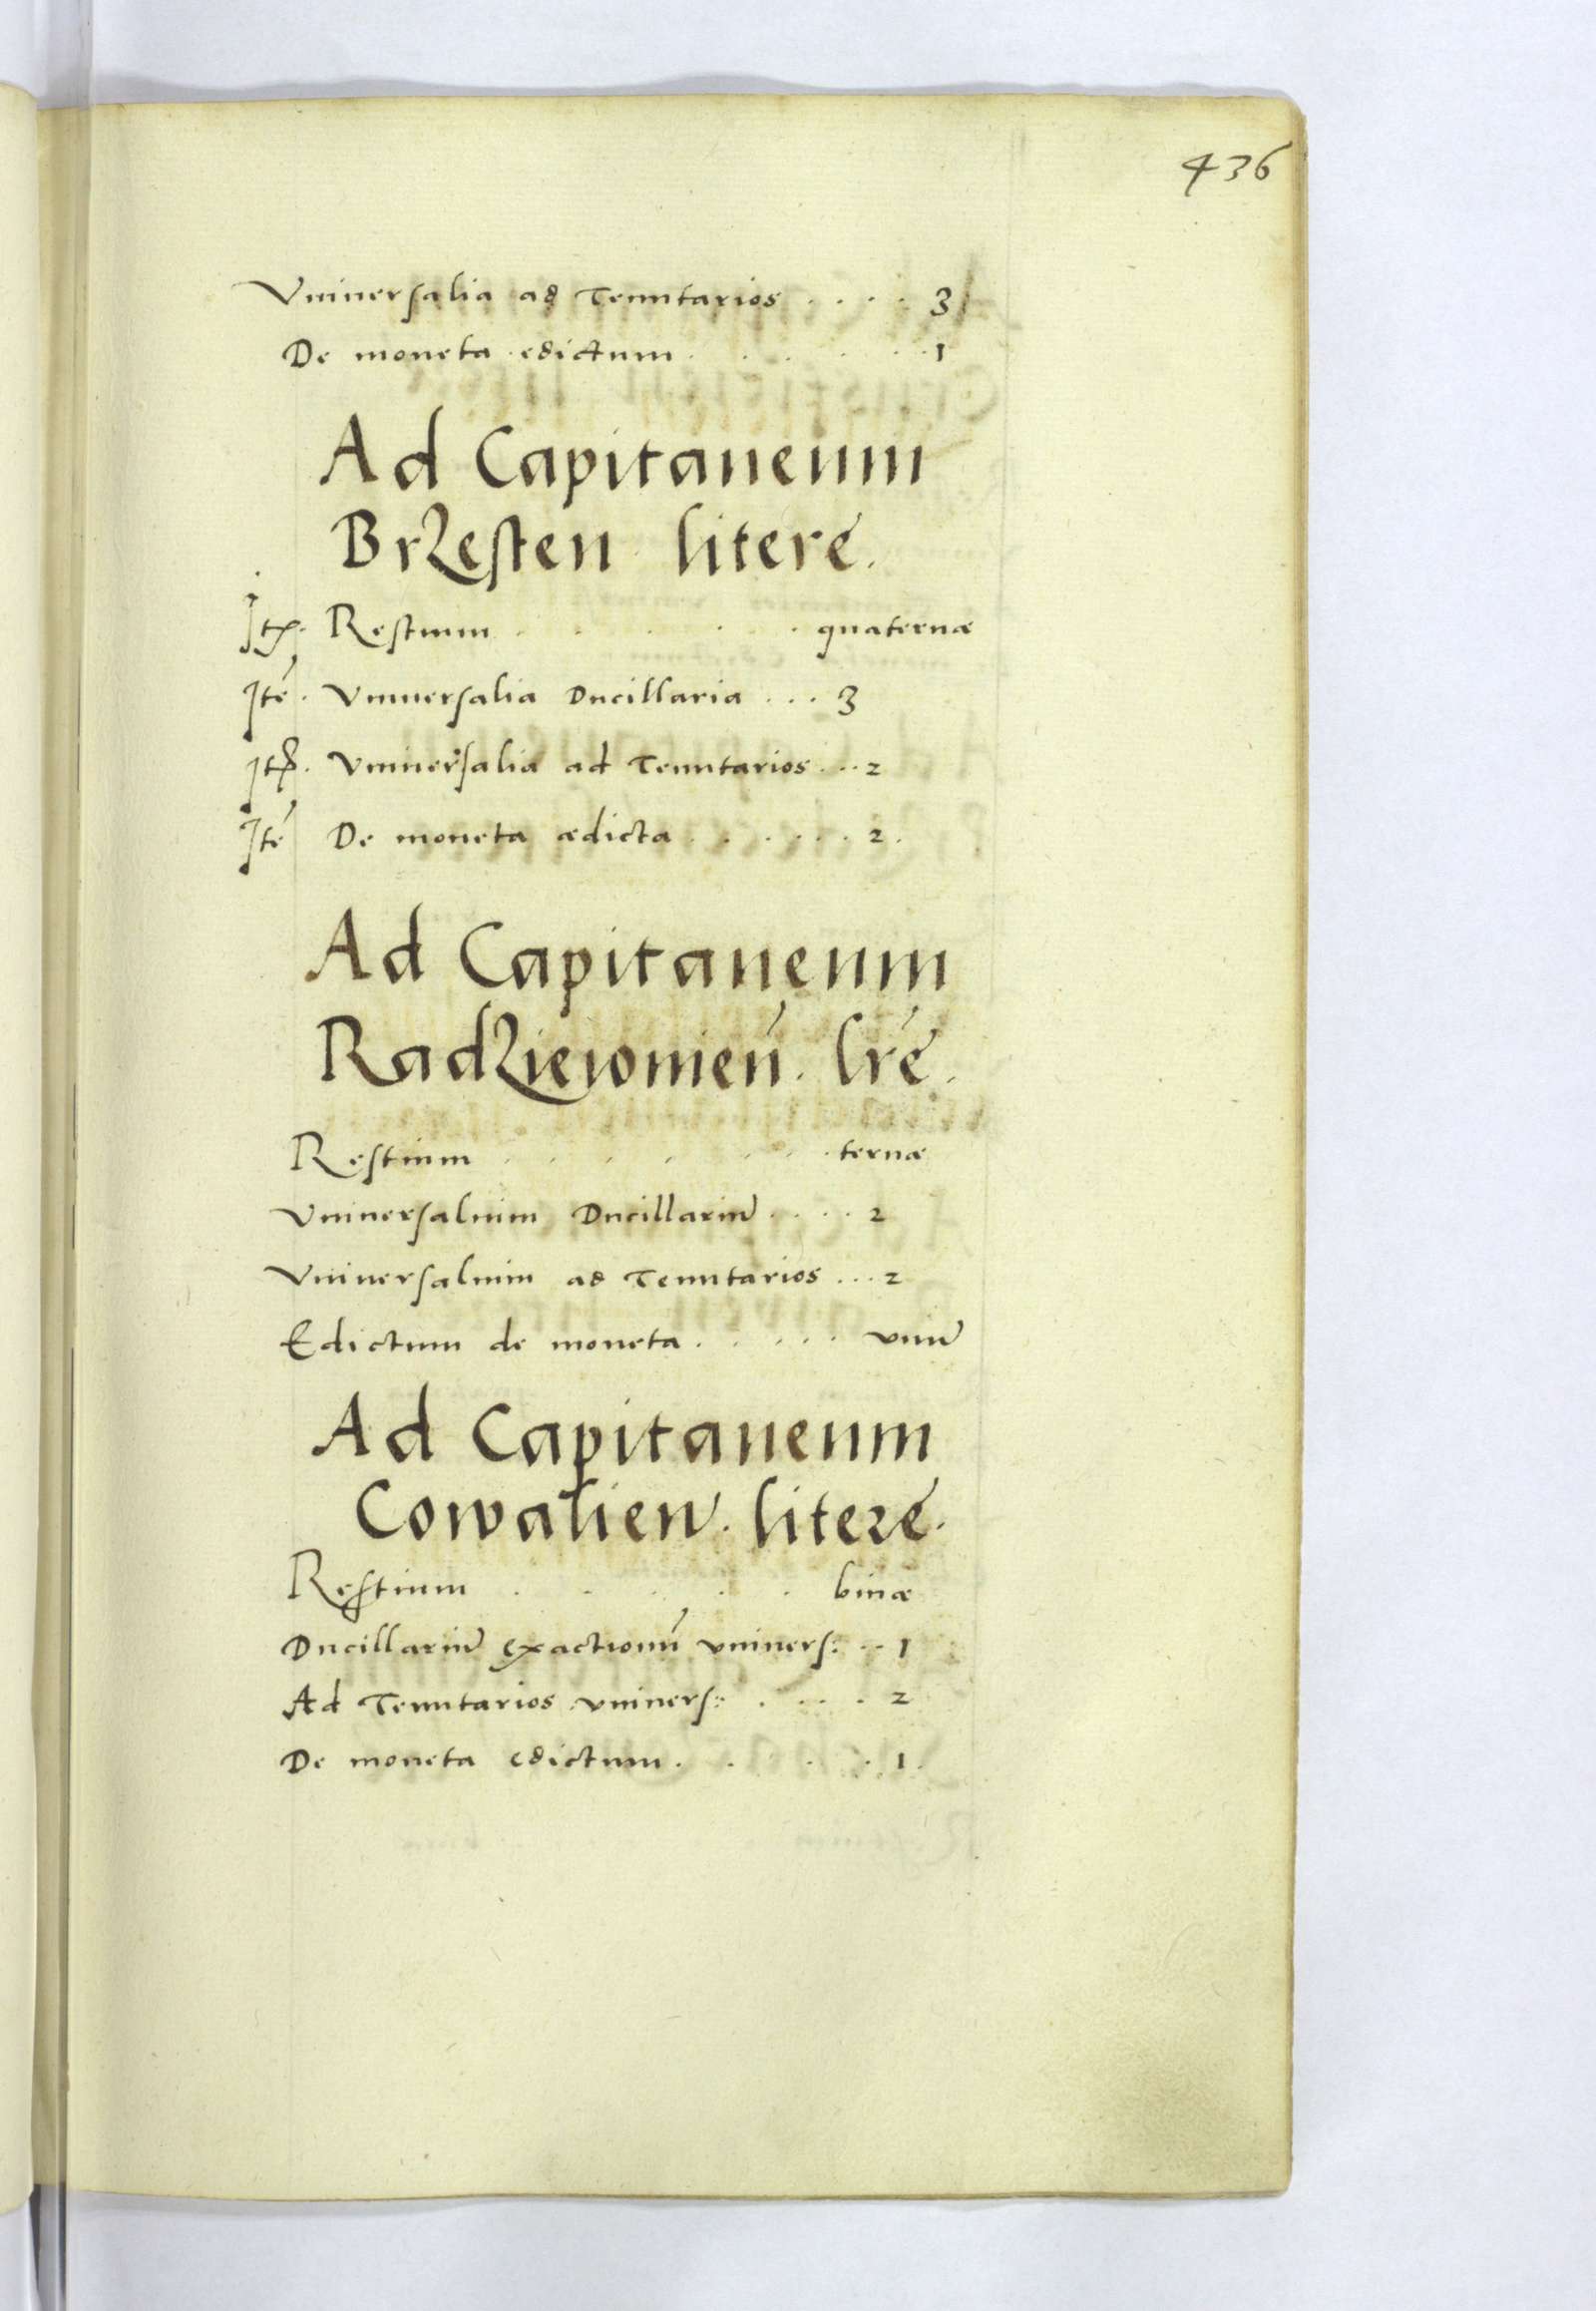 436
Vniuersalia ad Tenutarios . . . . 3
De moneta edictum . . . . . 1
Ad Capitaneum
Brzesten literę.
Itē. Restium . . . . . quaternæ
Itē. Vniuersalia Ducillaria . . . 3
Itē. Vniuersalia ad Tenutarios . . . 2
Itē De moneta ædicta . . . . . . 2.
Ad Capitaneum
Radzieiowien̄. lr̄e.
Restium . . . . . . ternæ
Vniuersalium Ducillariū . . . . 2
Vniuersalium ad Tenutarios . . . 2
Edictum de moneta . . . . . vnū
Ad Capitaneum
Cowalien̄. litere.
Restium . . . . . binæ
Ducillariū exactionū vniuers: . . 1
Ad Tenutarios vniuers: . . . . 2
De moneta edictum . . . . 1.